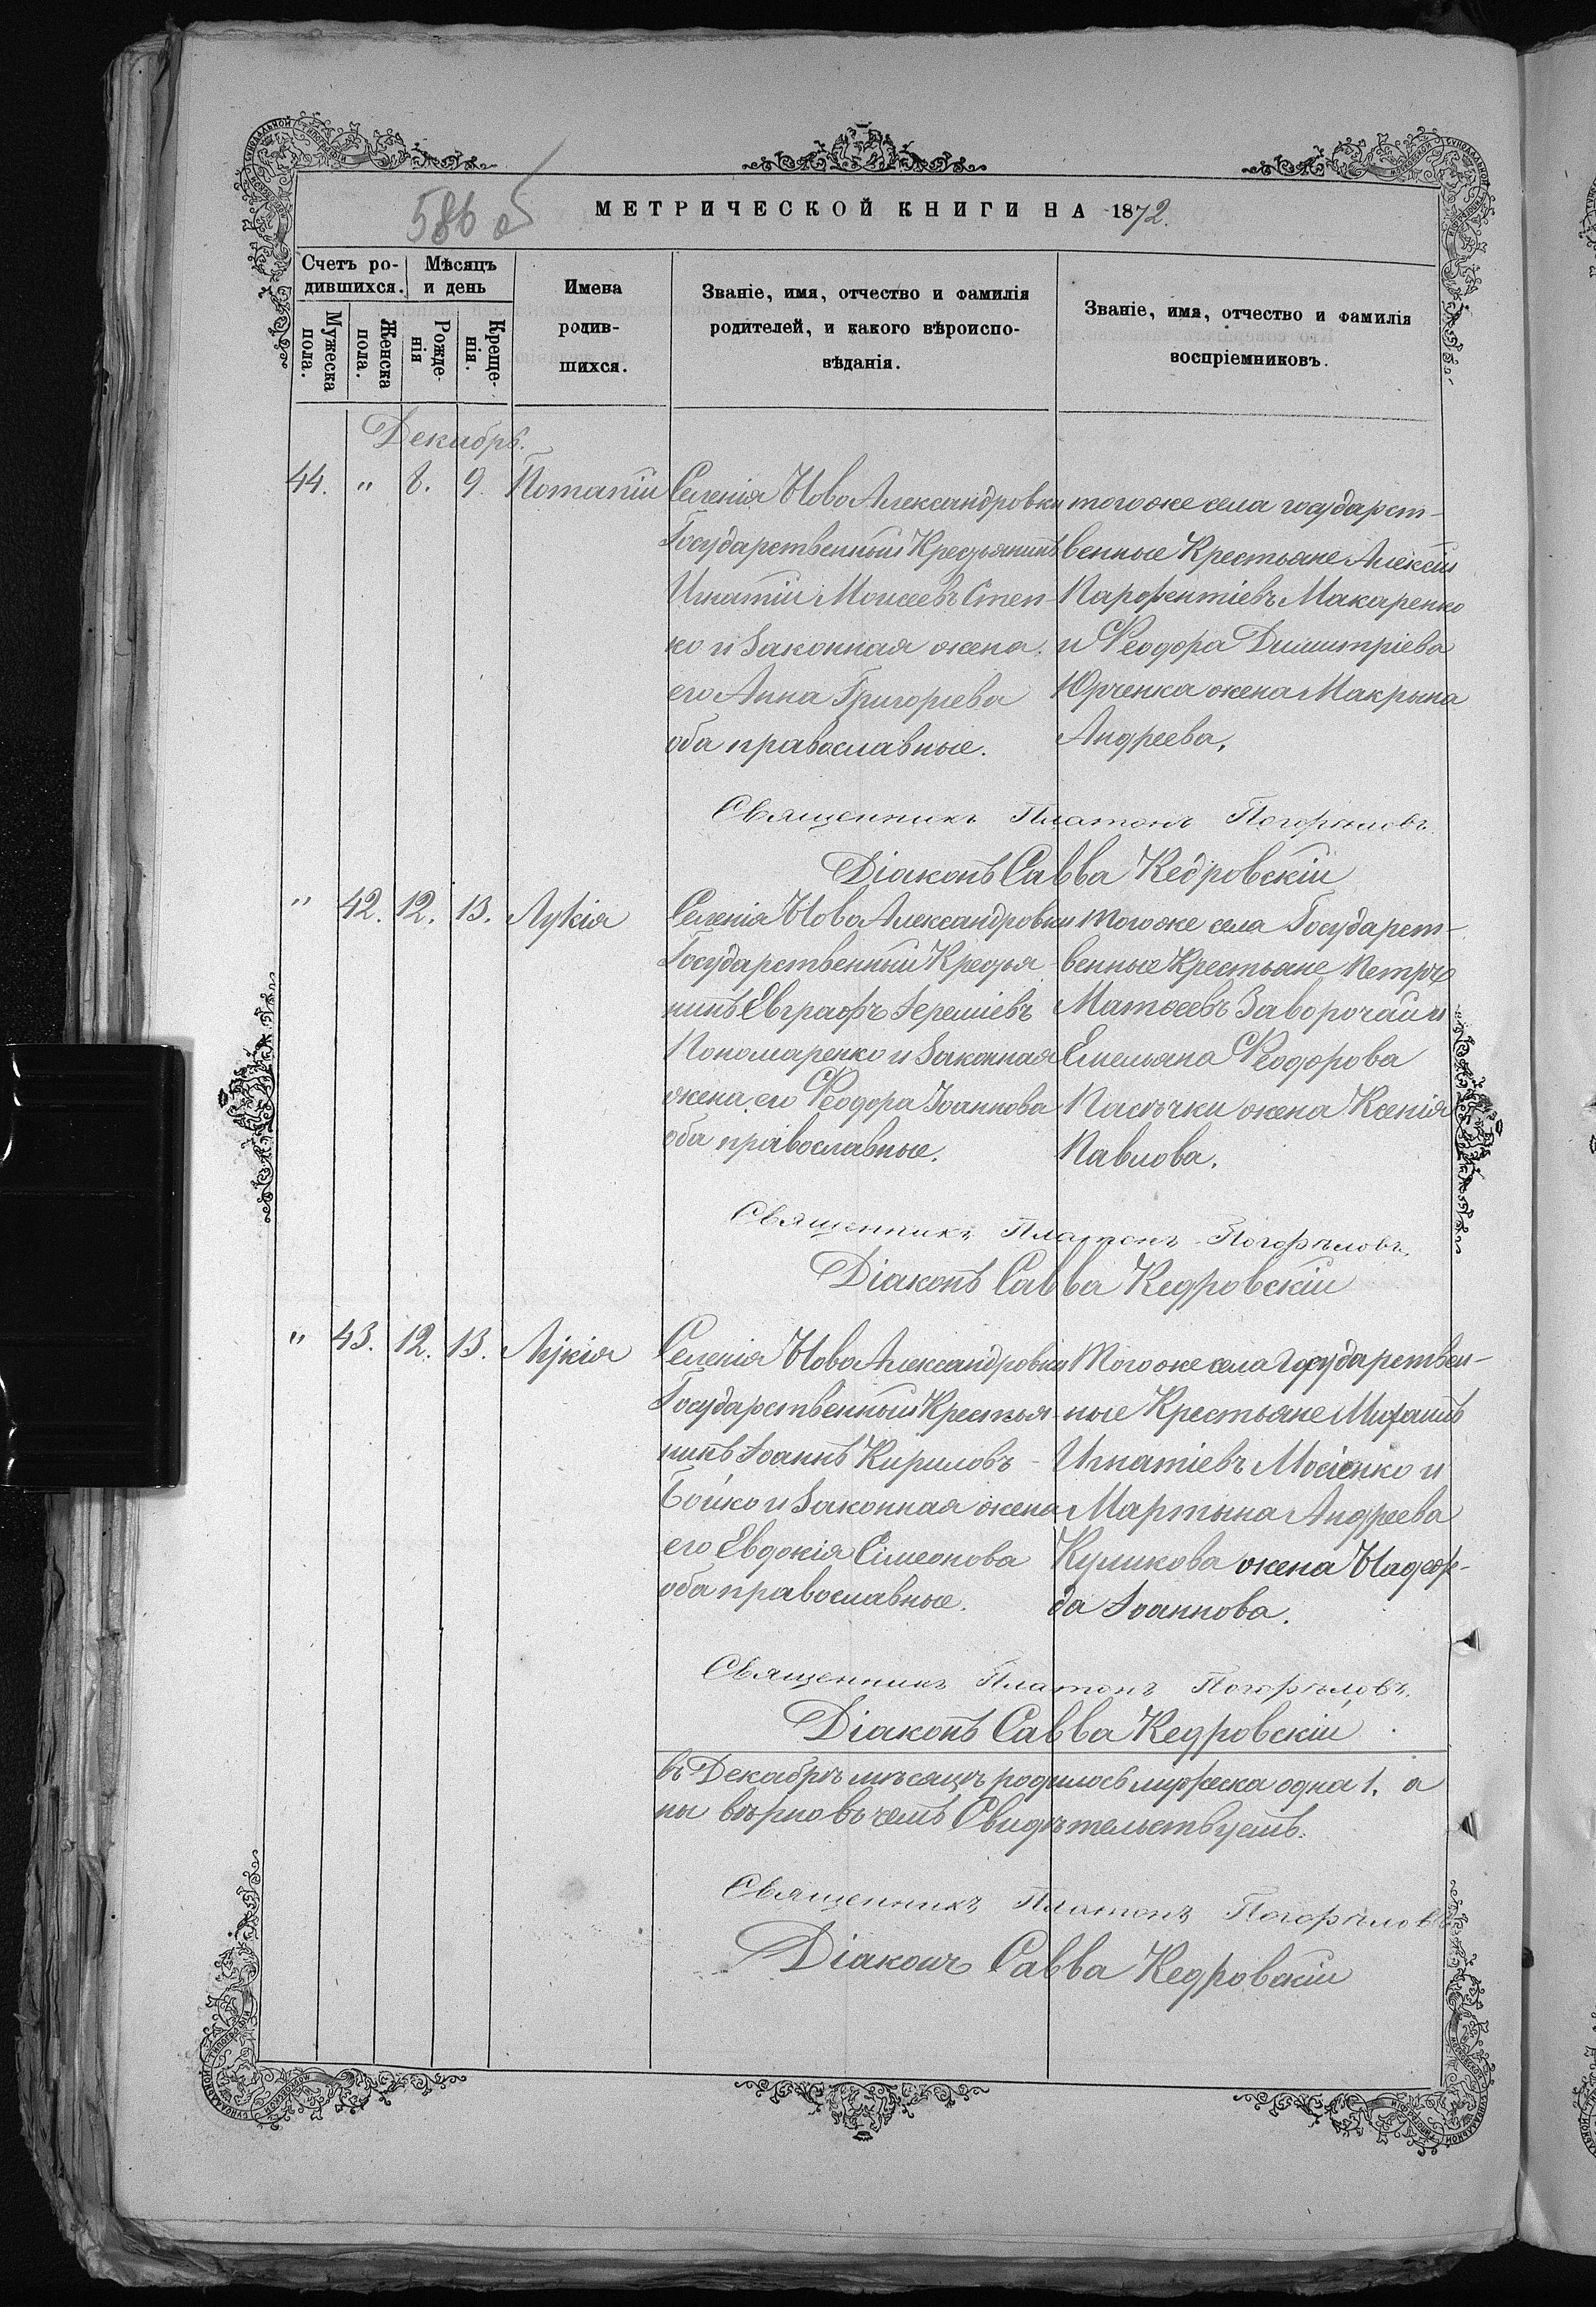 586 об
МЕТРИЧЕСКОЙ КНИГИ НА 1872.
Счетъ ро-
дившихся.
Мѣсяцъ
и день
Мужеска
пола.
Женска
пола.
Рожде-
нія
Креще-
нія.
Имена
родив-
шихся.
Званіе, имя, отчество и фамилія
родителей, и какого вѣроиспо-
вѣданія.
Званіе, имя, отчество и фамилія
воспріемниковъ.
Декабрь.
44. " 8. 9. Потапій
Селенія НовоАлександровки
Государственный Крестьянинъ
Игнатій Моисеевъ Степ-
ко и законная жена
его Анна Григорьева
оба православные.
тогоже села государст-
венные Крестьяне Алексій
Парфентіевъ Макаренко
и Феодора Димитріева
Юрченка жена Макрына
Андреева.
Священникъ Платонъ Погорѣловъ.
Діаконъ Савва Кедровскій
" 42. 12. 13. Лукія
Селенія НовоАлександровки
Государственный Крестья-
нинъ Евграфъ Іереміевъ
Пономаренко и законная
жена его Феодора Іоаннова
оба православные.
Тогоже села Государст-
венные Крестьяне Петръ
Матвеевъ Заворочай и
Емельяна Феодорова
Пасѣчки жена Ксенія
Павлова.
Священникъ Платонъ Погорѣловъ.
Діаконъ Савва Кедровскій
" 43. 12. 13. Лукія
Селенія НовоАлександровки
Государственный Крестья-
нинъ Іоаннъ Кириловъ
Бойко и законная жена
его Евдокія Сімеонова
оба православные.
Тогоже села Государствен-
ные Крестьяне Михаилъ
Игнатіевъ Мосіенко и
Мартына Андреева
Куликова жена Надеж-
да Іоаннова.
Священникъ Платонъ Погорѣловъ.
Діаконъ Савва Кедровскій
въ Декабрѣ мѣсяцѣ родилось мужеска одна 1. а
вѣрно въ чемъ Свидѣтельствуемъ.
Священникъ Платонъ Погорѣловъ
Діаконъ Савва Кедровскій